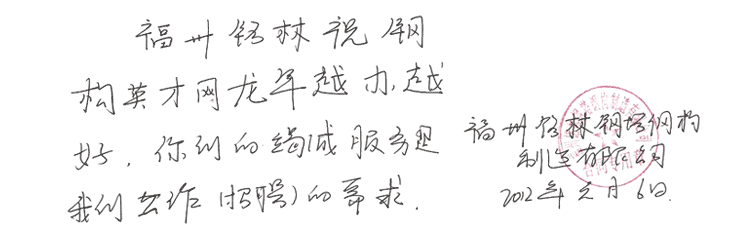 福州铭林祝钢
构英才网龙年越办越
好,你们的竭诚服务是
我们工作(招聘)的需求.
福州铭林钢塔钢构
制造有限公司
2012年元月6日.